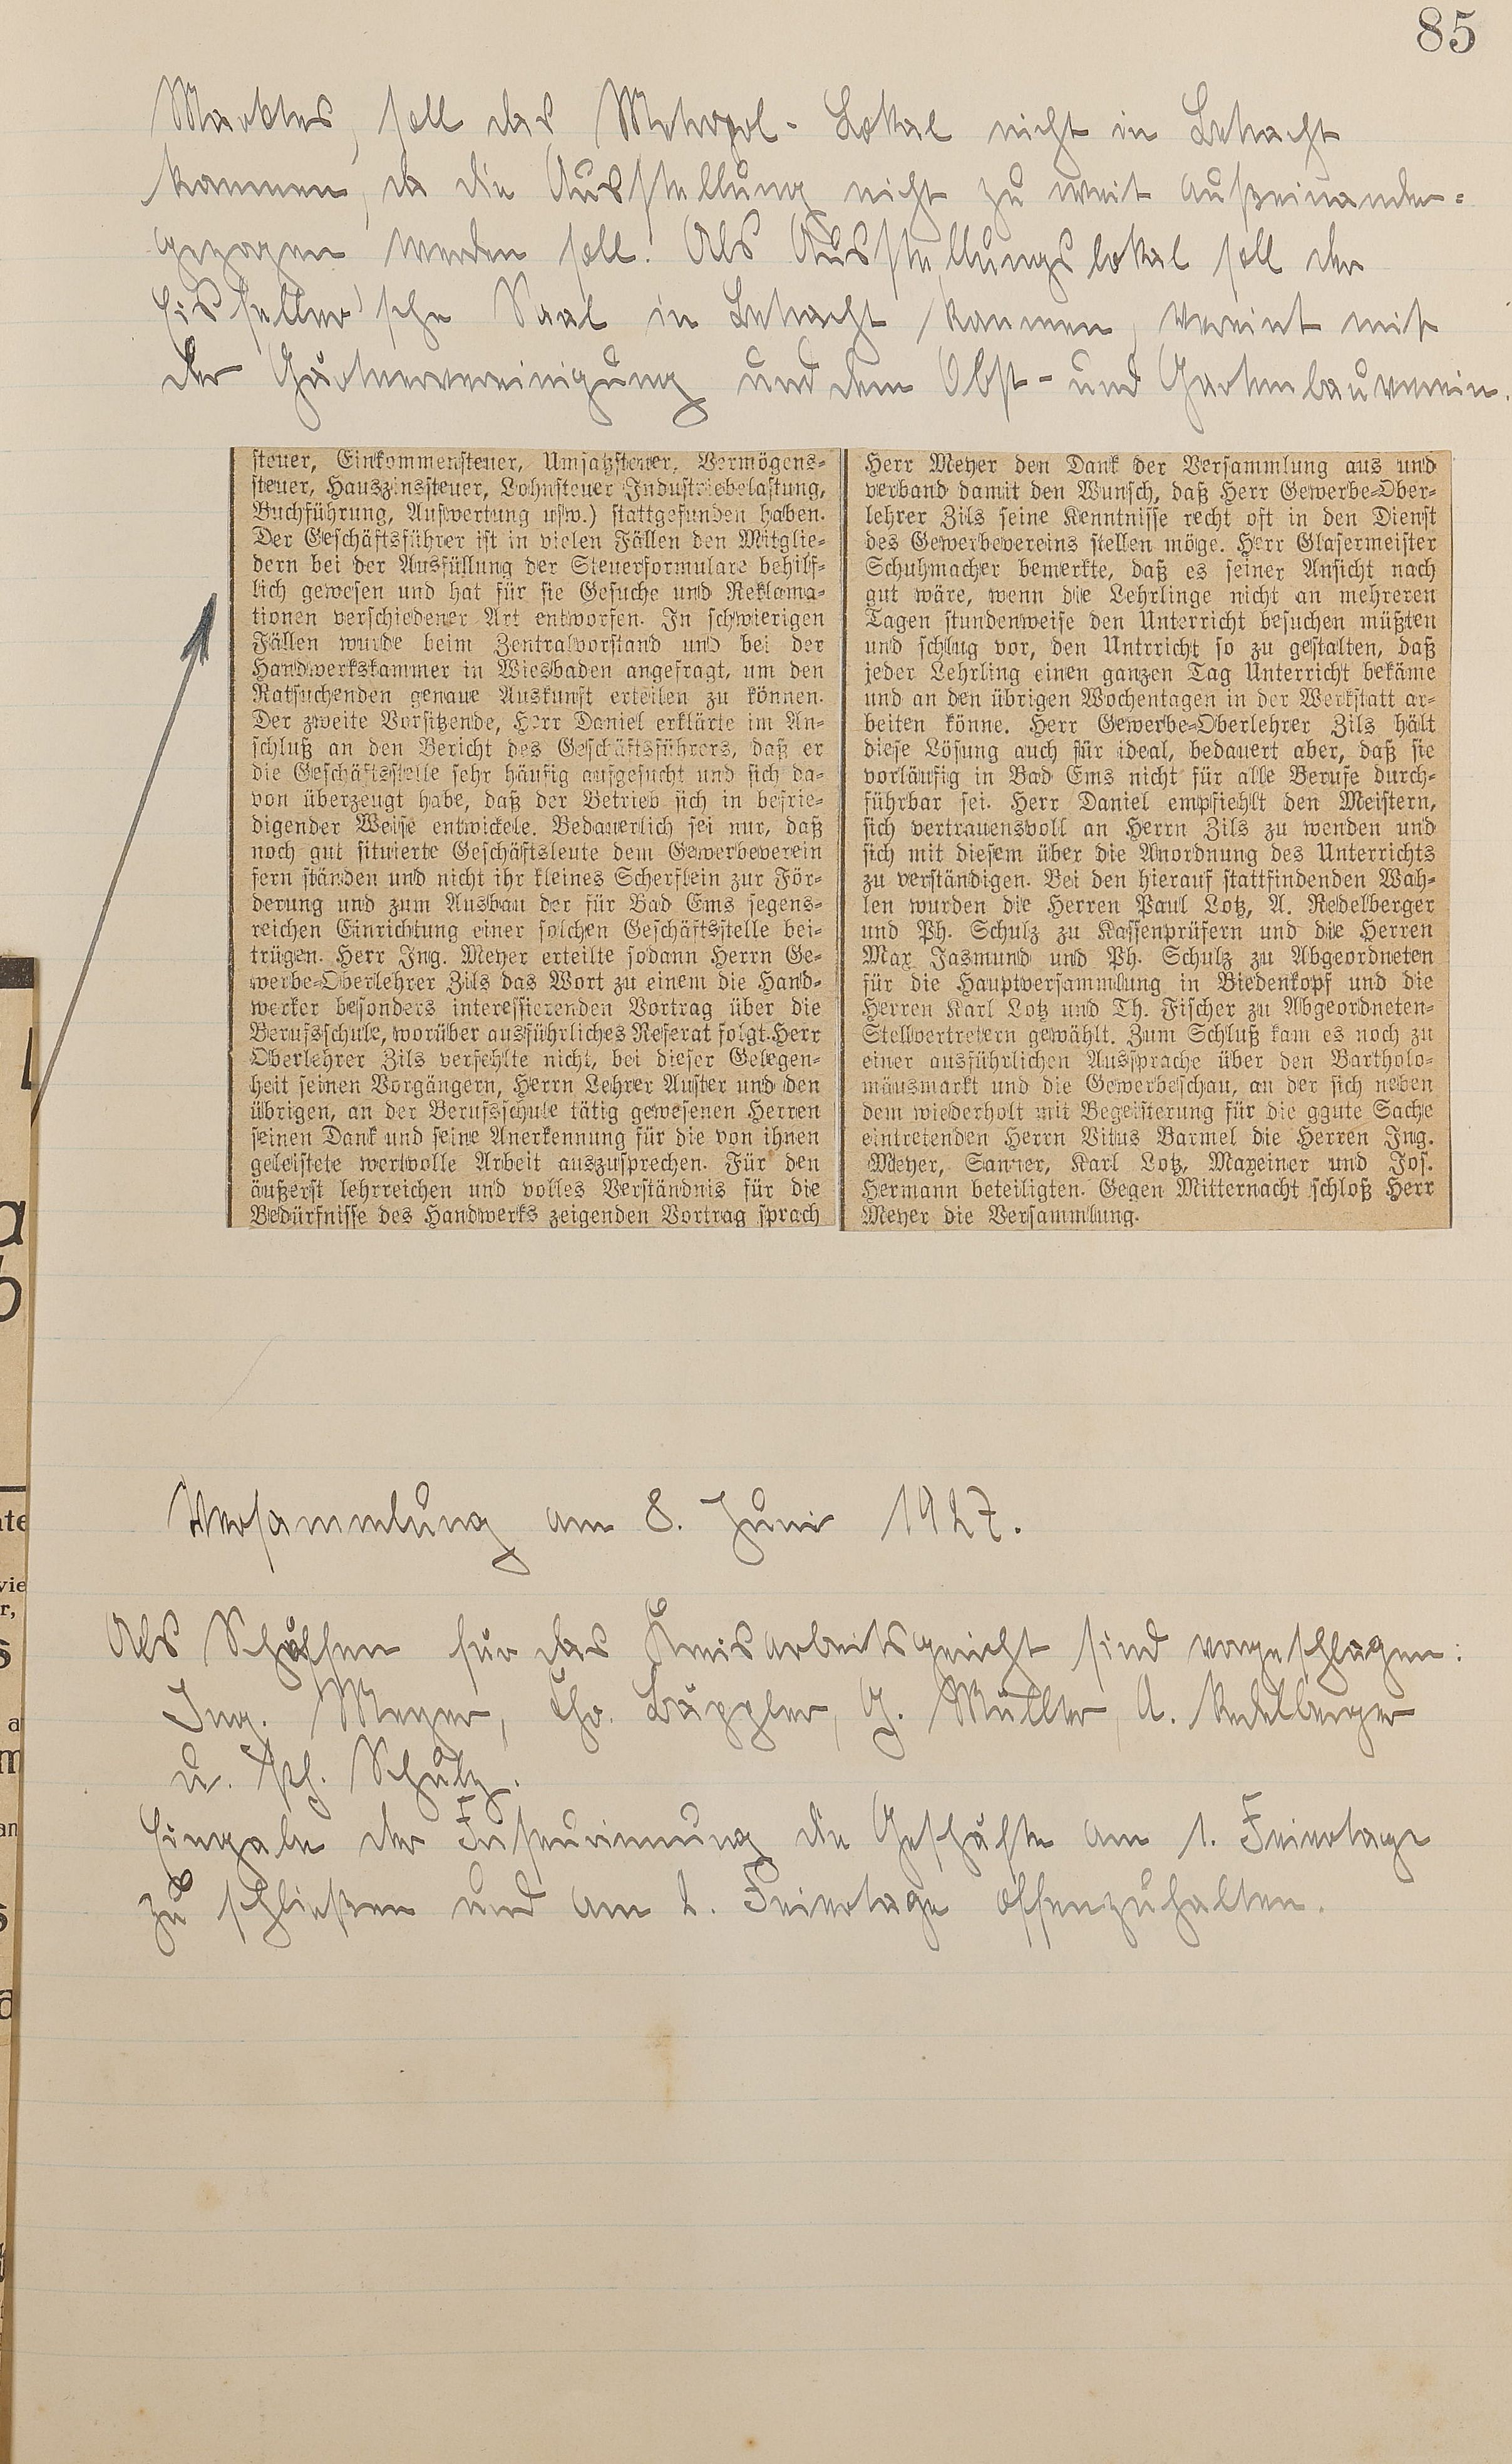 85
Marktes, soll das Metropol-Lokal nicht in Betracht
kommen, da die Ausstellung nicht zu weit außeinander-
gezogen werden soll. Als Ausstellungslokal soll der
sche Saal in Betracht kommen, vereint mit
der Gärtnervereinigung und dem Obst- und Gartenbauverein.
steuer, Einkommensteuer, Umsatzsteuer, Vermögens-
steuer, Hauszinssteuer, Lohnsteuer Industriebelastung,
Buchführung, Aufwertung usw.) stattgefunden haben.
Der Geschäftsführer ist in vielen Fällen den Mitglie-
dern bei der Ausfüllung der Steuerformulare behilf-
lich gewesen und hat für sie Gesuche und Reklama-
tionen verschiedener Art entworfen. In schwierigen
Fällen wurde beim Zentralvorstand und bei der
Handwerkskammer in Wiesbaden angefragt, um den
Ratsuchenden genaue Auskunft erteilen zu können.
Der zweite Vorsitzende, Herr Daniel erklärte im An-
schluß an den Bericht des Geschäftsführers, daß er
die Geschäftsstelle sehr häufig aufgesucht und sich da-
von überzeugt habe, daß der Betrieb sich in befrie-
digender Weise entwickele. Bedauerlich sei nur, daß
noch gut situierte Geschäftsleute dem Gewerbeverein
fern ständen und nicht ihr kleines Scherflein zur För-
derung und zum Ausbau der für Bad Ems segens-
reichen Einrichtung einer solchen Geschäftsstelle bei-
trügen. Herr Ing. Meyer erteilte sodann Herrn Ge-
werbe-Oberlehrer Zils das Wort zu einem die Hand-
werker besonders interessierenden Vortrag über die
Berufsschule, worüber ausführliches Referat folgt. Herr
Oberlehrer Zils verfehlte nicht, bei dieser Gelegen-
heit seinen Vorgängern, Herrn Lehrer Auster und den
übrigen, an der Berufsschule tätig gewesenen Herren
seinen Dank und seine Anerkennung für die von ihnen
geleistete wertvolle Arbeit auszusprechen. Für den
äußerst lehrreichen und volles Verständnis für die
Bedürfnisse des Handwerks zeigenden Vortrag sprach
Herr Meyer den Dank der Versammlung aus und
verband damit den Wunsch, daß Herr Gewerbe-Ober-
lehrer Zils seine Kenntnisse recht oft in den Dienst
des Gewerbevereins stellen möge. Herr Glasermeister
Schuhmacher bemerkte, daß es seiner Ansicht nach
gut wäre, wenn die Lehrlinge nicht an mehreren
Tagen stundenweise den Unterricht besuchen müßten
und schlug vor, den Untrricht so zu gestalten, daß
jeder Lehrling einen ganzen Tag Unterricht bekäme
und an den übrigen Wochentagen in der Werkstatt ar-
beiten könne. Herr Gewerbe-Oberlehrer Zils hält
diese Lösung auch für ideal, bedauert aber, daß sie
vorläufig in Bad Ems nicht für alle Berufe durch-
führbar sei. Herr Daniel empfiehlt den Meistern,
sich vertrauensvoll an Herrn Zils zu wenden und
sich mit diesem über die Anordnung des Unterrichts
zu verständigen. Bei den hierauf stattfindenden Wah-
len wurden die Herren Paul Lotz, A. Redelberger
und Ph. Schulz zu Kassenprüfern und die Herren
Max Jasmund und Ph. Schulz zu Abgeordneten
für die Hauptversammlung in Biedenkopf und die
Herren Karl Lotz und Th. Fischer zu Abgeordneten-
Stellvertretern gewählt. Zum Schluß kam es noch zu
einer ausführlichen Aussprache über den Bartholo-
mäusmarkt und die Gewerbeschau, an der sich neben
dem wiederholt mit Begeisterung für die ggute Sache
eintretenden Herrn Vitus Barmel die Herren Ing.
Meyer, Karl Lotz, Maxeiner und Jos.
Hermann beteiligten. Gegen Mitternacht schloß Herr
Meyer die Versammlung.
Versammlung am 8. Juni 1927.
Als Schöffen für das Kreisarbeitsgericht sind vorgeschlagen:
Ing. Meyer, Chr. Bäppler, G. Müller, A. Redelberger
u. Ph. Schulz.
Eingabe der Friseurinnung die Geschäfte am 1. Feiertage
zu schließen und am 2. Feiertage offenzuhalten.